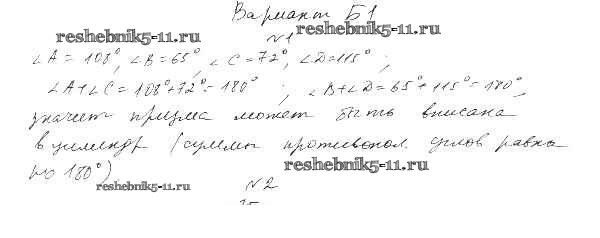 Вариант Б1
reshebnik5-11.ru
reshebnik5-11.ru
N1
∠A = 108°, ∠B = 65°, ∠C = 72°, ∠D = 115°;
∠A + ∠C = 108° + 72° = 180°; ∠B + ∠D = 65° + 115° = 180°,
значит призма может быть вписана
в цилиндр (суммы противопол. углов равны
по 180°)
reshebnik5-11.ru
reshebnik5-11.ru
N2